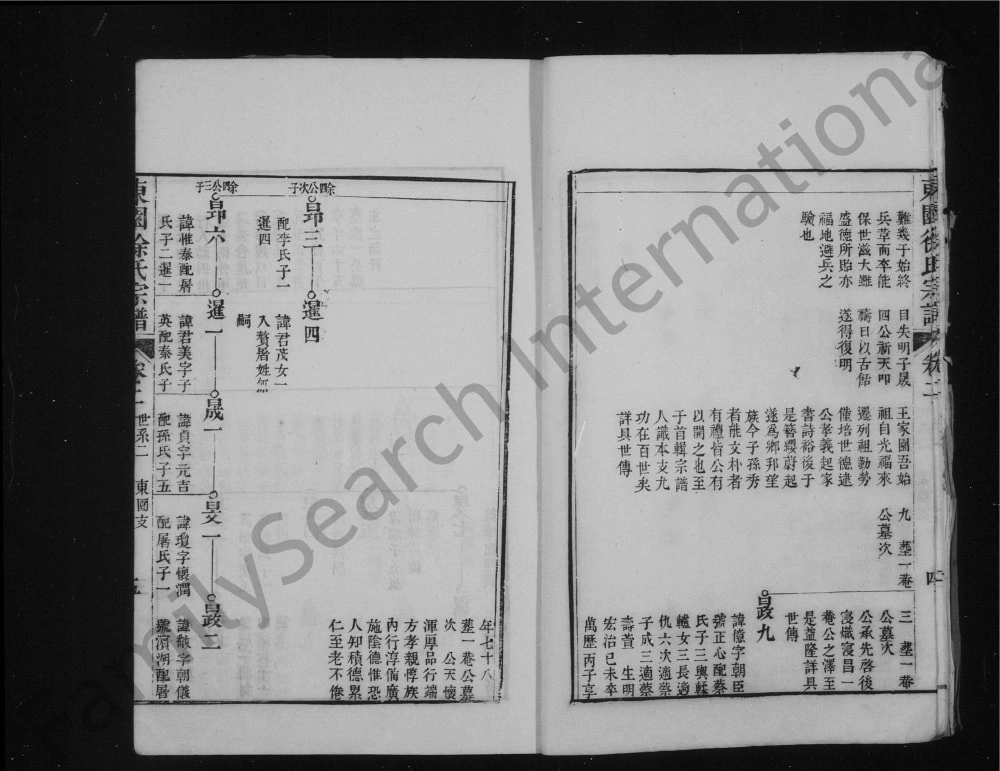 東園徐氏宗譜
卷二
四
難幾于始終
兵草而卒能
保世滋大雖
盛德所貽亦
福地避兵之
驗也
目失明子晟
四公祈天叩
禱日以舌餂
遂得復明
王家園吾始
祖自光福來
遷列祖勤勞
僅培世德逮
公孝義起家
書詩裕後于
是簪纓蔚起
遂爲鄉邦望
族今子孫秀
者能文朴者
有禮皆公有
以開之也至
于首輯宗譜
人識本支尤
功在百世矣
詳具世傳
九塟一巷
公墓次
三塟一巷
公墓次
公承先啓後
寖熾寖昌一
巷公之澤至
是益隆詳具
世傳
晸九
諱億字朝臣
號正心配蔡
氏子三
輿
轤女三長適
仇六次適蔡
子成三適蔡
壽萱 生明
宏治己未卒
萬歷丙子享
年七十八
塟一巷公墓
次 公天懷
渾厚品行端
方孝親悙族
內行淳備廣
施陰德惟恐
人知積德累
仁至老不倦
余四公次子
昂三
配李氏子一
暹四
暹四
諱君茂女一
入贅屠姓
嗣
余四公三子
昂六
諱惟泰配屠
氏子二暹一
暹一
諱君美字子
英配秦氏子
晟一
諱貞字元吉
配孫氏子五
旻一
諱瓊字懷潤
配屠氏子一
晸二
諱敏字朝儀
號濱湖配屠
東園徐氏宗譜
卷二
世系二
東園支
五
FamilySearch International